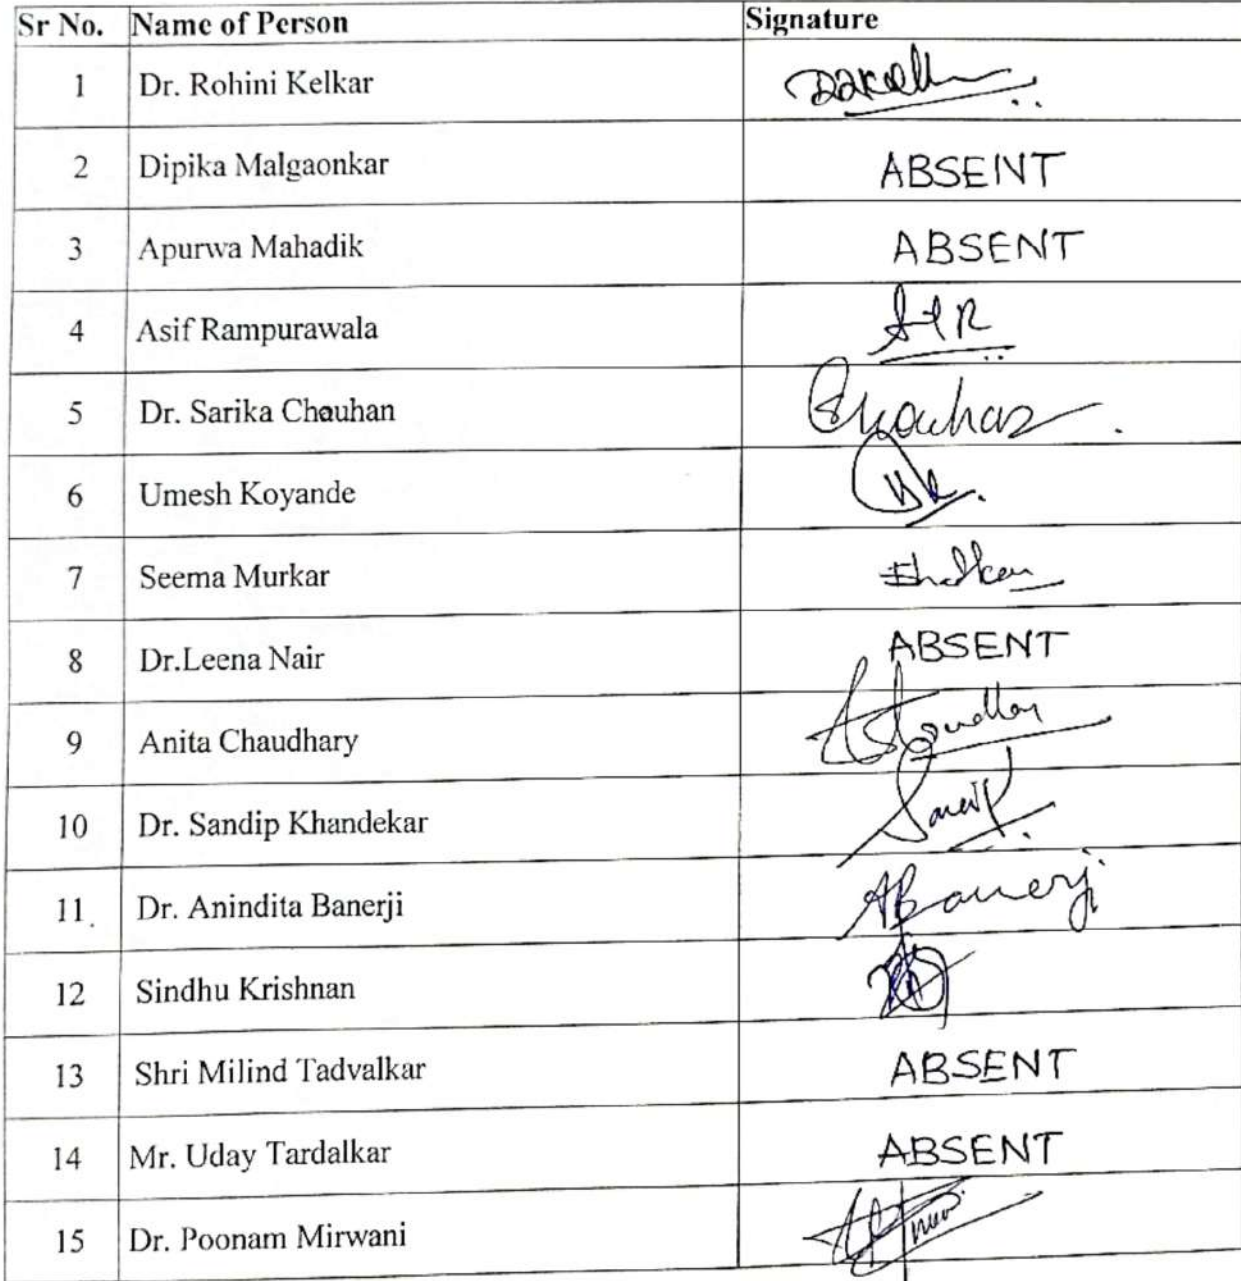 Sr No. Name of Person Signature
1 Dr. Rohini Kelkar
2 Dipika Malgaonkar ABSENT
3 Apurwa Mahadik ABSENT
4 Asif Rampurawala
5 Dr. Sarika Chauhan
6 Umesh Koyande
7 Seema Murkar
8 Dr.Leena Nair ABSENT
9 Anita Chaudhary
10 Dr. Sandip Khandekar
11 Dr. Anindita Banerji ABanerji
12 Sindhu Krishnan
13 Shri Milind Tadvalkar ABSENT
14 Mr. Uday Tardalkar ABSENT
15 Dr. Poonam Mirwani